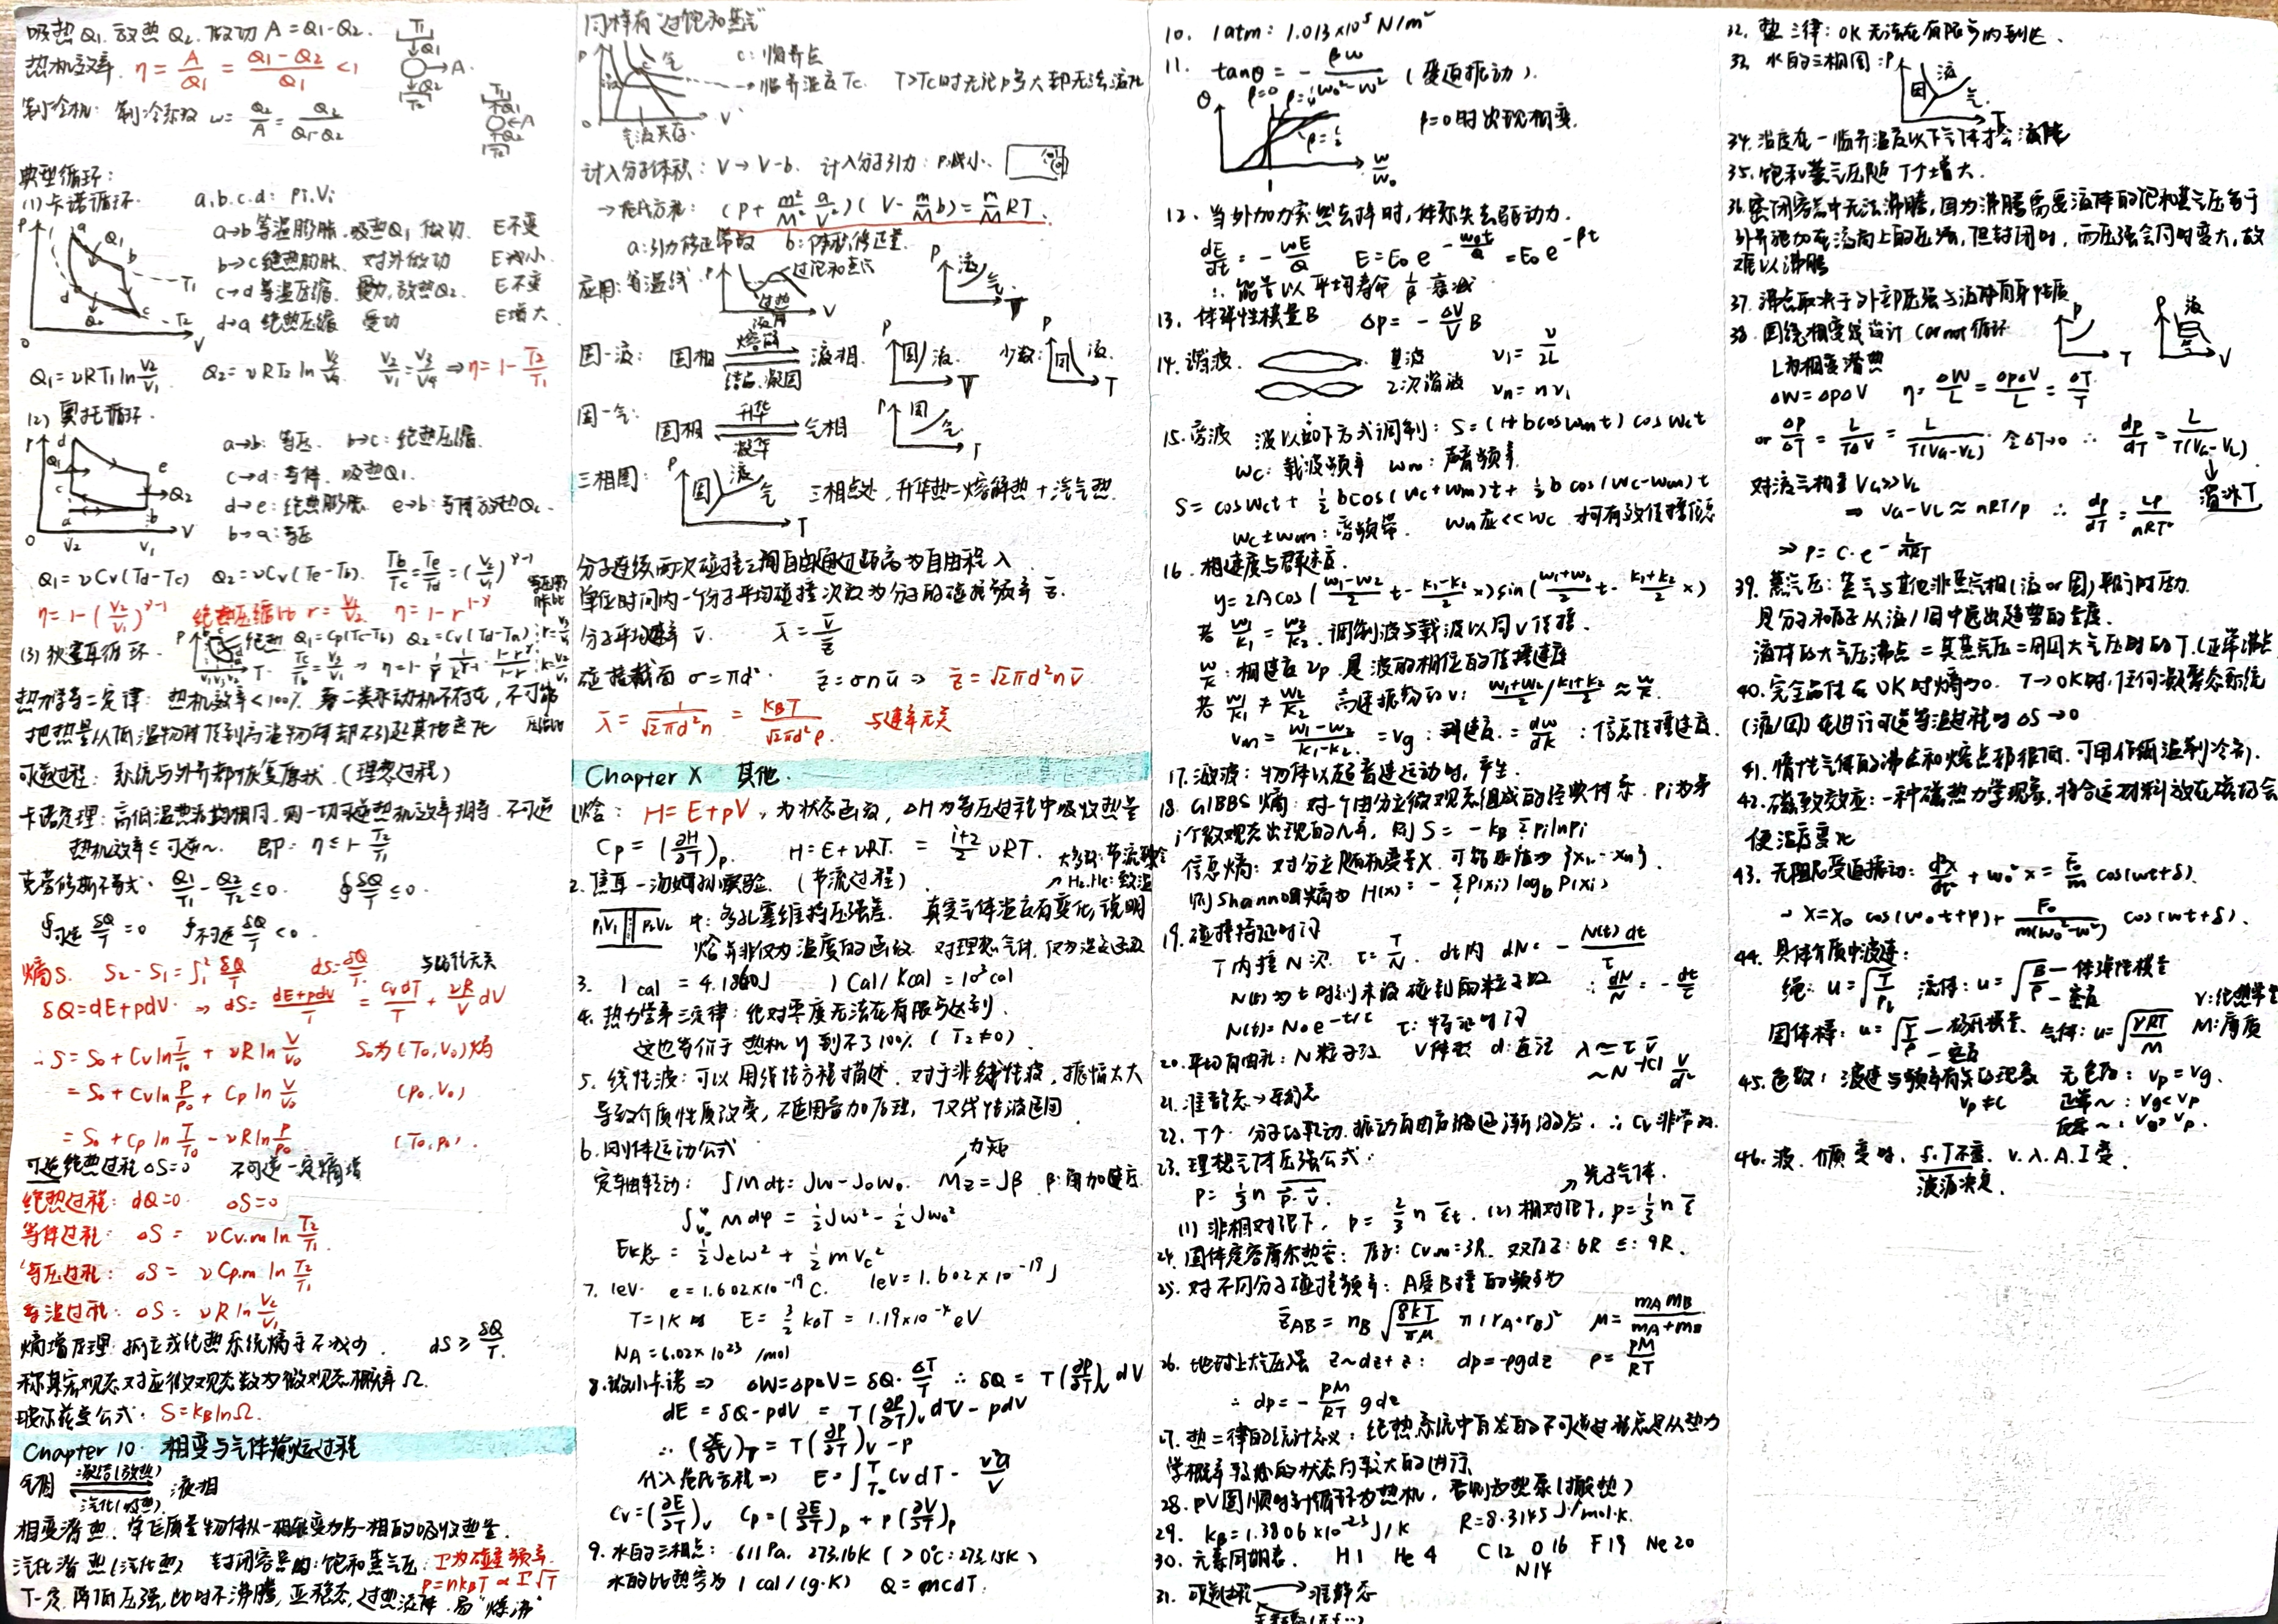 吸热Q1. 放热Q2. 做功 A=Q1-Q2.
热机效率. η = A/Q1 = (Q1-Q2)/Q1 < 1
制冷机: 制冷系数 w = Q2/A = Q2/(Q1-Q2)
典型循环:
(1) 卡诺循环. a.b.c.d: Pi.Vi
a→b 等温膨胀. 吸热Q1 做功. E不变
b→c 绝热膨胀. 对外做功 E减小.
c→d 等温压缩. 受功, 放热Q2. E不变
d→a 绝热压缩 受功 E增大
Q1=νRT1 ln V2/V1 Q2=νRT2 ln V3/V4 V2/V1=V3/V4 ⇒ η=1-T2/T1
(2) 奥托循环.
a→b: 等压. b→c: 绝热压缩.
c→d: 等体. 吸热Q1.
d→e: 绝热膨胀. e→b: 等体放热Q2.
b→a: 等压
Q1=νCv(Td-Tc) Q2=νCv(Te-Tb). Tb/Tc=Te/Td=(V2/V1)^(γ-1)
η=1-(V2/V1)^(γ-1) 绝热压缩比 r=V1/V2 η=1-r^(1-γ)
(3) 狄塞耳循环.
热力学第二定律: 热机效率<100%. 第二类永动机不存在, 不可能
把热量从低温物体传到高温物体却不引起其他变化
可逆过程: 系统与外界都恢复原状. (理想过程)
卡诺定理: 高低温热源均相同, 则一切可逆热机效率相等. 不可逆
热机效率≤可逆~. 即: η≤1-T2/T1
克劳修斯不等式. Q1/T1 - Q2/T2 ≤0. ∮δQ/T ≤0.
∮可逆 δQ/T =0 ∮不可逆 δQ/T <0.
熵S. S2-S1=∫₁² δQ/T dS=δQ/T. 与路径无关
δQ=dE+pdV. ⇒ dS=(dE+pdV)/T = CvdT/T + νR/V dV
∴S=S0+Cv ln T/T0 + νR ln V/V0 S0为(T0,V0)熵
=S0+Cv ln P/P0 + Cp ln V/V0 (P0,V0)
=S0+Cp ln T/T0 - νR ln P/P0 (T0,P0).
可逆绝热过程 ΔS=0 不可逆一定熵增
绝热过程: dQ=0 ΔS=0
等体过程: ΔS= νCv.m ln T2/T1
等压过程: ΔS= νCp.m ln T2/T1
等温过程: ΔS= νR ln V2/V1
熵增原理: 孤立或绝热系统熵永不减少. dS≥δQ/T.
称某宏观态对应微观态数为微观态概率Ω.
玻尔兹曼公式. S=kB lnΩ.
Chapter 10. 相变与气体输运过程
气相 凝结(放热) 汽化(吸热) 液相
相变潜热. 单位质量物体从一相转变为另一相的吸收热量.
汽化潜热(汽化热) 封闭容器内: 饱和蒸气压. I为碰壁频率.
P=nkBT ∝ I√T
T一定. 降低压强, 此时不沸腾, 亚稳态, 过热液体. 易"爆沸"
同样有"过饱和蒸气"
C: 临界点
临界温度Tc. T>Tc时无论P多大都无法液化
气液共存.
计入分子体积: V→V-b. 计入分子引力: P减小.
→范氏方程: (P+ m²/M² a/V²)(V- m/M b)= m/M RT.
a:引力修正常数 b:体积修正量.
应用: 等温线. 过饱和蒸气 过热液体 液 气
固-液: 固相 熔解 结晶.凝固 液相. 固 液. 少数: 固 液.
固-气: 固相 升华 凝华 气相 固 气
三相图: 固 液 气 三相点处, 升华热=熔解热+汽化热.
分子连续两次碰撞之间自由通过距离为自由程λ
单位时间内一个分子平均碰撞次数为分子的碰撞频率 z̄.
分子平均速率 v̄. λ̄=v̄/z̄
碰撞截面 σ=πd². z̄=σnū ⇒ z̄=√2πd²nv̄
λ̄=1/(√2πd²n) = kBT/(√2πd²P). 与速率无关
Chapter X 其他.
1.焓: H=E+pV, 为状态函数, ΔH为等压过程中吸收热量
Cp=(∂H/∂T)p. H=E+νRT. = (i+2)/2 νRT.
2. 焦耳-汤姆孙实验. (节流过程) H2.He: 致温
P1V1 P2V2 中: 多孔塞维持压强差. 真实气体温度有变化, 说明
焓并非仅为温度的函数 对理想气体, 仅为温度函数
3. 1cal = 4.1860J 1Cal/kcal=10³cal
4. 热力学第三定律: 绝对零度无法在有限步达到.
这也等价于 热机η到不了100% (T2≠0).
5. 线性波: 可以用线性方程描述. 对于非线性波, 振幅太大
导致介质性质改变, 不适用叠加原理,
6. 刚体运动公式 力矩
定轴转动: ∫Mdt=Jω-J0ω0. Mz=Jβ β:角加速度.
∫Mdφ=½Jω²-½Jω0²
Ek总=½Jcω²+½mVc²
7. 1eV. e=1.602×10⁻¹⁹C. 1eV=1.602×10⁻¹⁹J
T=1K时 E=3/2 kBT=1.19×10⁻⁴eV
NA=6.02×10²³ /mol
8.微小卡诺⇒ ΔW=ΔPΔV=δQ·ΔT/T ∴δQ=T(∂P/∂T)v dV
dE=δQ-pdV=T(∂P/∂T)v dV-pdV
∴(∂E/∂V)T=T(∂P/∂T)v-P
代入范氏方程⇒ E=∫CvdT-ν²a/V
Cv=(∂E/∂T)v Cp=(∂E/∂T)p+P(∂V/∂T)p
9. 水的三相点: 611Pa. 273.16K (>0℃:273.15K)
水的比热容为 1cal/(g·K) Q=mcdT.
10. 1atm: 1.013×10⁵N/m²
11. tanθ=-βω/(ω0²-ω²) (受迫振动).
β=0时出现相变.
12. 当外加力突然去掉时, 体系失去驱动力.
dE/dt=-ωE/Q E=E0e^(-ω0t/Q)=E0e^(-βt)
∴能量以平均寿命 1/β 衰减
13. 体弹性模量B ΔP=-ΔV/V B
14. 谐波. 基波 ν1=v/2L
2次谐波 νn=nν1
15. 旁波 波以如下方式调制: S=(1+bcosωmt)cosωct
ωc: 载波频率 ωm: 声音频率
S=cosωct+½bcos(ωc+ωm)t+½bcos(ωc-ωm)t
ωc±ωm: 旁频带. ωm应<<ωc 才可有效传播信息
16. 相速度与群速度.
y=2Acos((ω1-ω2)/2 t-(k1-k2)/2 x)sin((ω1+ω2)/2 t-(k1+k2)/2 x)
若 ω1/k1=ω2/k2. 调制波与载波以同v传播.
ω/k: 相速度 vp. 是波的相位的传播速度
若 ω1/k1≠ω2/k2 高速振动的v: (ω1+ω2)/2 / (k1+k2)/2 ≈ω/k.
vm=(ω1-ω2)/(k1-k2)=vg: 群速度.=dω/dk : 信息传播速度.
17. 激波: 物体以超音速运动时, 产生.
18. GIBBS 熵: 对一个由分立微观态组成的经典体系. Pi为第
i个微观态出现的几率, 则S=-kBΣPilnPi
信息熵: 对分立随机变量X. 可能取值为{X1…Xn}.
则Shannon熵为 H(x)=-ΣP(xi)logbP(xi)
19. 碰撞特征时间
T内撞N次. τ=T/N. dt内 dN=-N(t)dt/τ
N(t)为t时刻未被碰到的粒子数 ∴dN/N=-dt/τ
N(t)=N0e^(-t/τ) τ:特征时间
20. 平均自由程: N粒子数 V体积 d:直径 λ≈τv̄
~N⁻¹ V/d²
21. 准静态→平衡态
22. T↑. 分子的转动.振动自由度被逐渐激发. ∴Cv非常数.
23. 理想气体压强公式.
P=⅓n p·v. 光子气体.
(1) 非相对论下, P=⅔nε̄t. (2) 相对论下, P=⅓nε̄
24. 固体定容摩尔热容: 原子: Cv.m=3R. 双原子:6R 三:9R.
25. 对不同分子碰撞频率: A受B撞的频率为
z̄AB=nB√(8kT/πμ) π(rA+rB)² μ=mAmB/(mA+mB)
26. 地球上大气压强 z~dz+z: dp=-ρgdz ρ=PM/RT
∴dp=-PM/RT gdz
27. 热二律的统计意义: 绝热系统中自发的不可逆过程总是从热力
学概率较小的状态向较大的进行.
28. PV图顺时针循环为热机, 否则为热泵(搬热)
29. kB=1.3806×10⁻²³J/K R=8.3145J/mol·K.
30. 元素周期表. H1 He4 C12 O16 F19 Ne20
N14
31. 可逆过程 准静态
32. 热三律: 0K无法在有限步内到达.
33. 水的三相图: 固 液 气
34. 温度在一临界温度以下气体才会液化
35. 饱和蒸气压随T↑增大.
36.密闭容器中无法沸腾, 因为沸腾需要液体的饱和蒸气压等于
外界施加在液面上的压强, 但封闭时, 两压强会同时变大, 故
难以沸腾
37. 沸点取决于外部压强与液体自身性质
38. 围绕相变线设计 Carnot循环
L为相变潜热
ΔW=ΔPΔV η=ΔW/L=ΔPΔV/L=ΔT/T
or ΔP/ΔT=L/TΔV=L/T(VG-VL). 令ΔT→0 ∴ dp/dT=L/T(VG-VL)
对液气相变 VG>>VL
⇒ VG-VL≈nRT/P ∴ dp/dT=LP/nRT²
⇒ P=C·e^(-L/nRT)
39. 蒸气压: 蒸气与其他非蒸气相(液or固)平衡时压力.
是分子和原子从液/固中逸出趋势的量度.
液体的大气压沸点=其蒸气压=周围大气压时的T.(正常沸点)
40. 完全晶体在0K时熵为0. T→0K时, 任何凝聚态系统
(液/固)在进行可逆等温过程时ΔS→0
41. 惰性气体的沸点和熔点都很低. 可用作低温制冷剂.
42. 磁致效应: 一种磁热力学现象, 将合适材料放在磁场会
使温度变化
43. 无阻尼受迫振动: d²x/dt²+ω0²x=F0/m cos(ωt+δ).
→ X=X0cos(ω0t+φ)+F0/m(ω0²-ω²) cos(ωt+δ).
44. 具体介质中波速:
绳: u=√(T/ρl) 流体: u=√(B/ρ) —体弹性模量 —密度 γ:绝热常量
固体棒: u=√(Y/ρ) —杨氏模量. —密度 气体: u=√(γRT/M) M:摩质
45. 色散: 波速与频率有关的现象 无色散: vp=vg.
vp≠c 正常~: vg<vp
反常~: vg>vp.
46. 波. 介质变时, f.T不变. v.λ.A.I变.
波源决定.